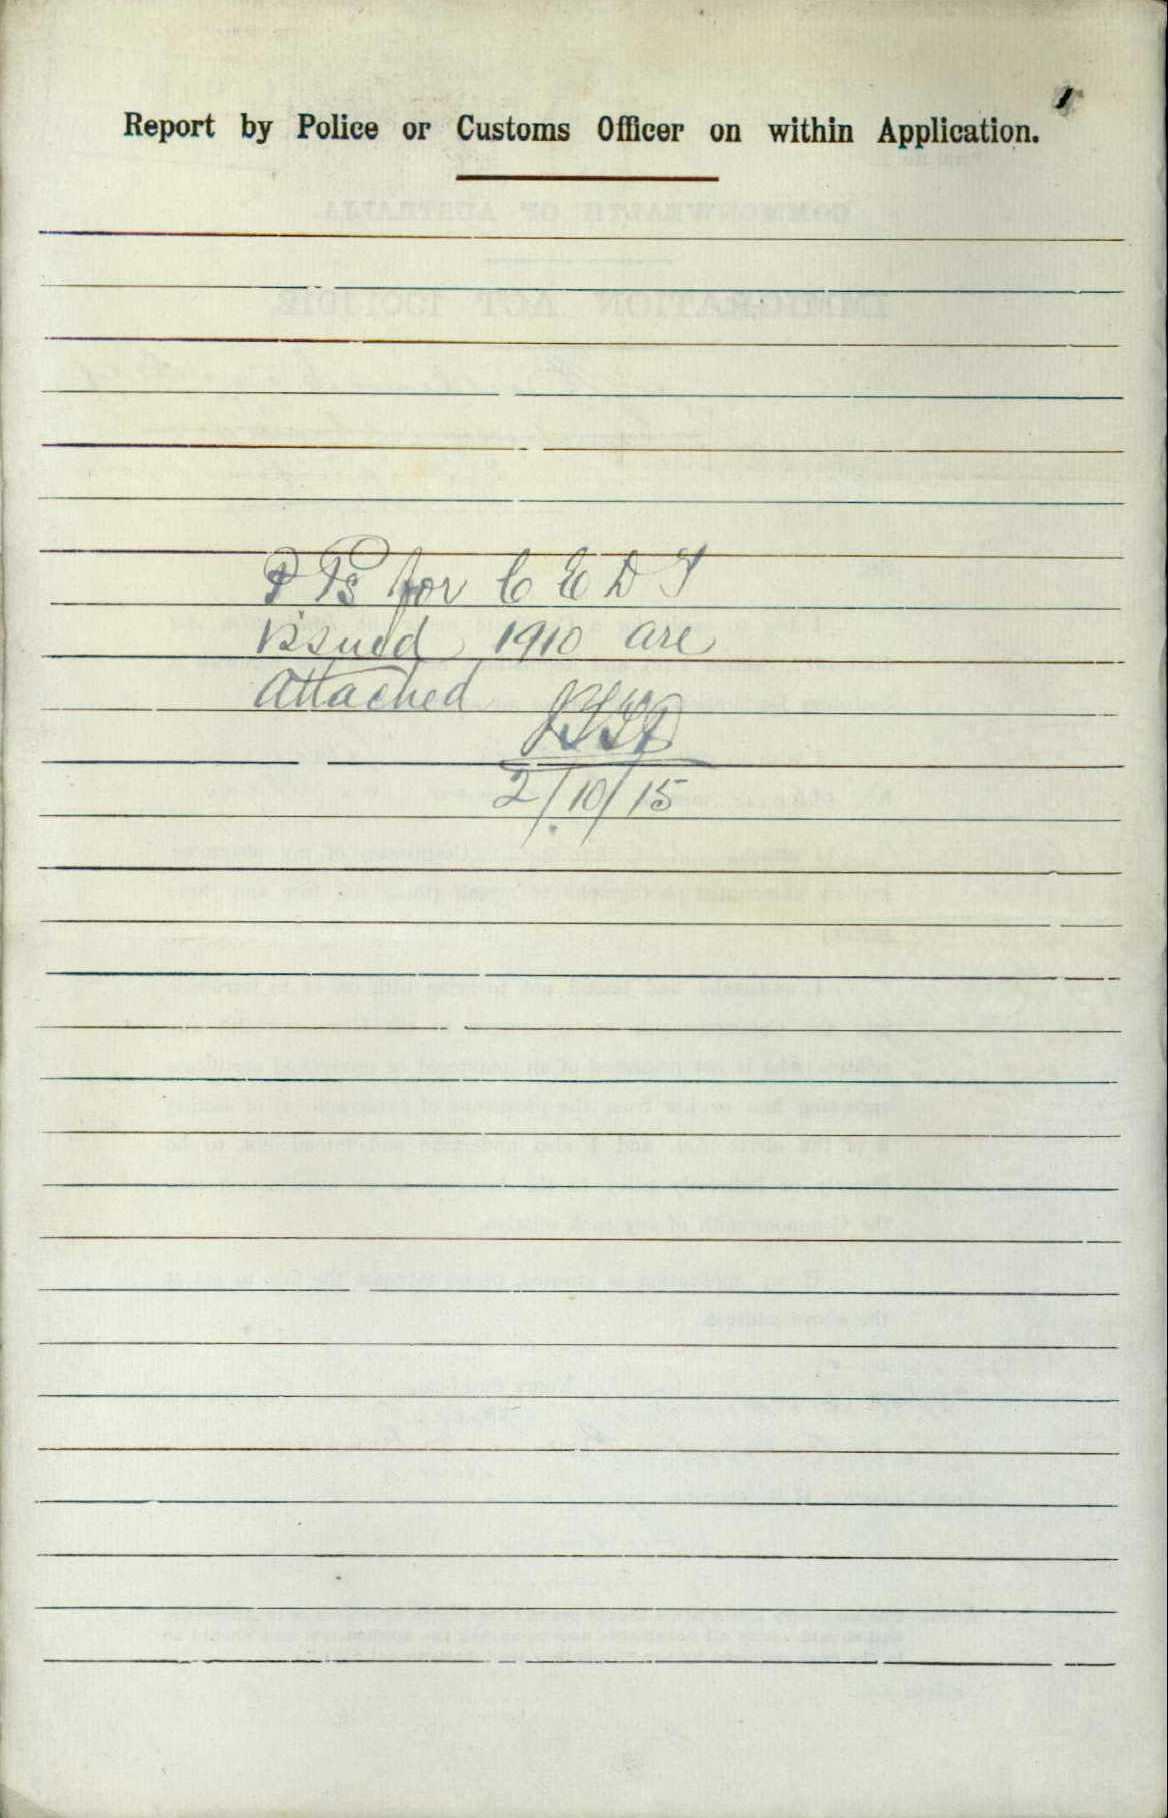 Report by Police or Customs Officer on within Application.
P Ps for C E D T
issued 1910 are
attached
2/10/15